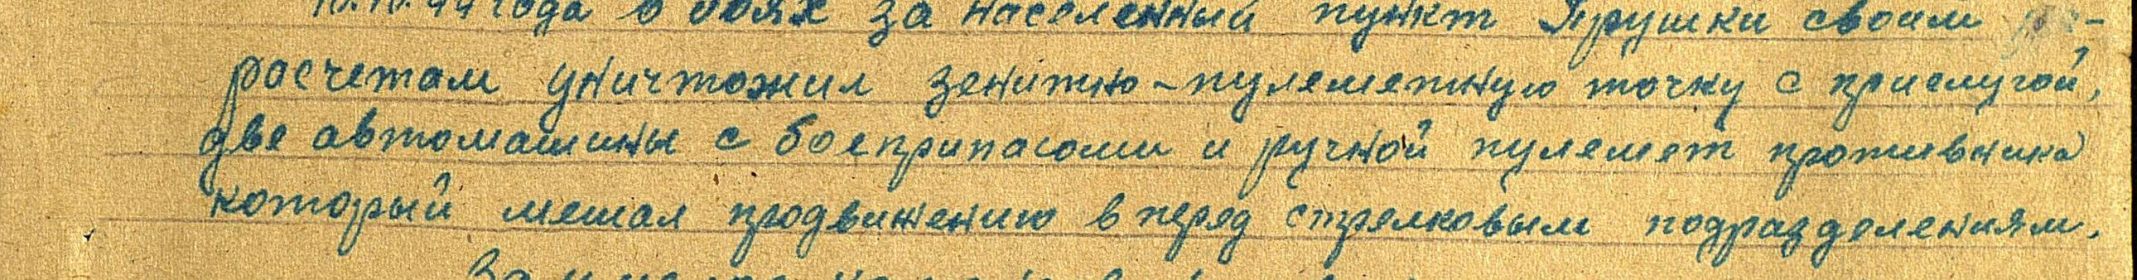 10.10.44 года в боях за населенный пункт Трушки своим
расчетам уничтожил зенитно-пулеметную точку с прислугой,
две автомашины с боеприпасами и ручной пулемет противника
который мешал продвижению вперед стрелковым подразделениям.